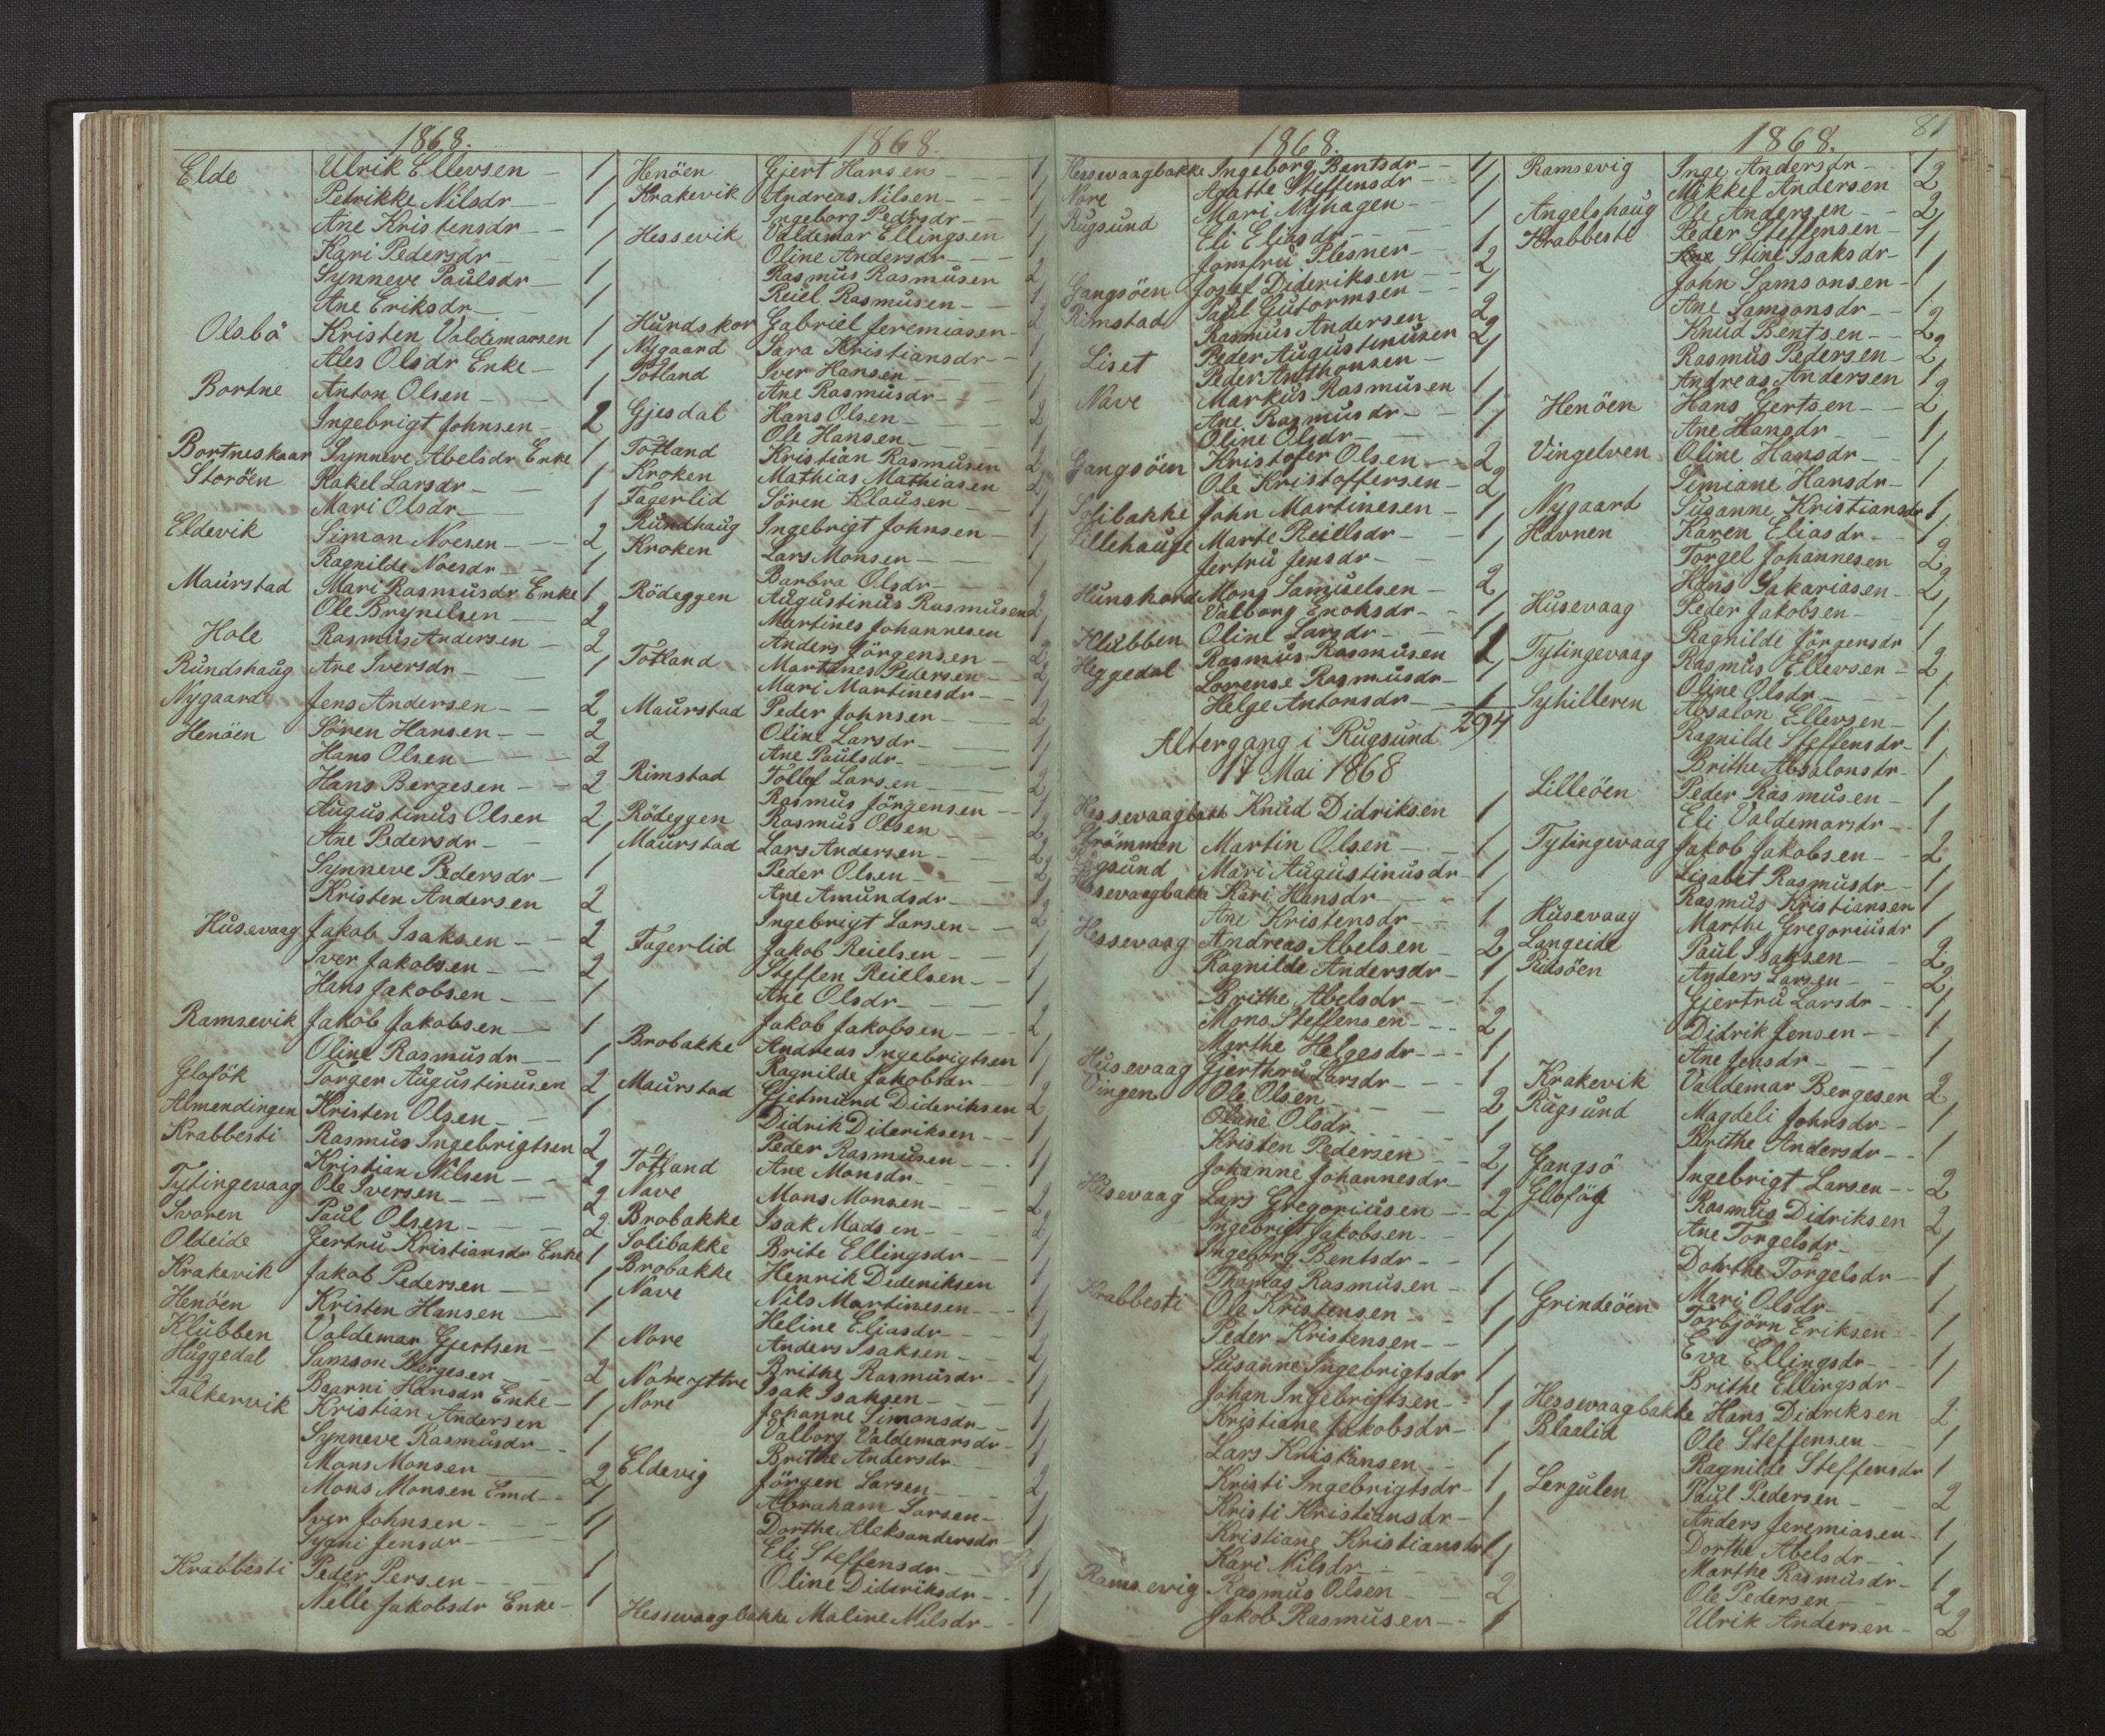 1868.
Elde Ulrik Ellevsen 1
Petrikke Nilsdr 1
Ane Kristensdr 1
Kari Pedersdr 1
Synneve Paulsdr 1
Ane Eriksdr 1
Olsbö Kristen Valdemarsen 1
Ales Olsdr Enke 1
Bortne Anton Olsen 1
Ingebrigt Johnsen 2
Bortneskaar Synneve Abelsdr Enke 1
Storöen Rakel Larsdr 1
Mari Olsdr 1
Eldevik Simon Noesen 2
Ragnilde Noesdr 1
Maurstad Mari Rasmusdr Enke 1
Ole Brynilsen 2
Hole Rasmus Andersen 2
Rundshaug Ane Iversdr 1
Nygaard Jens Andersen 2
Henöen Sören Hansen 2
Hans Olsen 2
Hans Bergesen 2
Augustinus Olsen 2
Ane Pedersdr 1
Synneve Pedersdr 1
Kristen Andersen 2
Husevaag Jakob Isaksen 2
Iver Jakobsen 2
Hans Jakobsen 1
Ramsevik Jakob Jakobsen 1
Oline Rasmusdr 1
Glofök Torger Augustinusen 2
Almendingen Kristen Olsen 1
Krabbesti Rasmus Ingebrigtsen 2
Kristian Nilsen 2
Tytingevaag Ole Iversen 2
Svoren Paul Olsen 2
Oldeide Gertru Kristiansdr Enke 1
Krakevik Jakob Pedersen 1
Henöen Kristen Hansen 1
Klubben Valdemar Gjertsen 1
Huggedal Samson Bergesen 2
Baarni Hansdr Enke 1
Falkervik Kristian Andersen 1
Synneve Rasmusdr 1
Mons Monsen 2
Mons Monsen Emd 1
Iver Johnsen 1
Sygni Jensdr 1
Krabbesti Peder Persen 1
Nelle Jakobsdr Enke 1
1868.
Henöen Gjert Hansen 1
Krakevik Andreas Nilsen 1
Ingeborg Pedrsdr 1
Hessevik Valdemar Ellingsen 1
Oline Andersdr 1
Rasmus Rasmusen 2
Reiel Rasmusen 1
Hundskor Gabriel Jeremiasen 2
Nygaard Sara Kristiansdr 1
Totland Iver Hansen 1
Ane Rasmusdr 1
Gjesdal Hans Olsen 2
Ole Hansen 1
Totland Kristian Rasmusen 2
Kroken Mathias Mathiasen 2
Fagerlid Sören Klausen 1
Rundhaug Ingebrigt Johnsen 1
Kroken Lars Monsen 1
Barbra Olsdr 1
Rödeggen Augustinus Rasmusen 2
Martines Johannesen 1
Anders Jörgensen 2
Totland Martines Pedersen 2
Mari Martinesdr 1
Maurstad Peder Johnsen 2
Oline Larsdr 1
Ane Paulsdr 1
Rimstad Tollef Larsen 2
Rasmus Jörgensen 1
Rödeggen Rasmus Olsen 2
Maurstad Lars Andersen 2
Peder Olsen 2
Ane Amundsdr 1
Ingebrigt Larsen 2
Fagerlid Jakob Reielsen 1
Steffen Reielsen 1
Ane Olsdr 1
Jakob Jakobsen 2
Brobakke Andreas Ingebrigtsen 1
Ragnilde Jakobsdr 1
Maurstad Gjetmund Dideriksen 2
Didrik Dideriksen 1
Peder Rasmusen 1
Totland Ane Monsdr 1
Nave Mons Monsen 2
Brobakke Isak Madsen 2
Solibakke Brite Ellingsdr 1
Brobakke Henrik Dederiksen 1
Nave Nils Martinesen 1
Heline Eliasdr 1
Nore Anders Isaksen 2
Brithe Rasmusdr 1
Nore yttre Isak Isaksen 1
Nore Johanne Simonsdr 1
Valborg Valdemarsdr 1
Brithe Andersdr 1
Eldevig Jörgen Larsen 2
Abraham Larsen 1
Dorthe Aleksandersdr 1
Eli Steffensdr 1
Oline Didriksdr 1
Hessevaagbakke Maline Nilsdr 1
81
1868.
Hessevaagbakke Ingeborg Bentsdr 1
Nore Agathe Steffensdr 1
Rugsund Mari Myhagen 1
Eli Eliasdr 1
Jomfru Plesner 2
Gangsöen Josef Dideriksen 1
Rimstad Paul Gutormsen 2
Rasmus Andersen 2
Liset Peder Augustinusen 1
Peder Anthonsen
Nave Markus Rasmusen 1
Ane Rasmusdr 1
Oline Olsdr 1
Gangsöen Kristofer Olsen 2
Ole Kristoffersen 2
Solibakke John Martinesen 1
Lillehauge Marte Reiellsdr 1
Jertru Jensdr 1
Hunskord Mons Samuelsen 2
Valborg Enoksdr 1
Klubben Oline Larsdr 1
Heggedal Rasmus Rasmusen 1
Lovense Rasmusdr 1
Helge Antonsdr 1
294
Altergang i Rugsund
17 Mai 1868
Hessevaagbakk Knud Didriksen 1
Strömmen Martin Olsen 1
Rugsund Mari Augustinusdr 1
Hessevaagbakke Kari Hansdr 1
Ane Kristensdr 1
Hessevaag Andreas Abelsen 2
Ragnilde Andersdr 1
Brithe Abelsdr 1
Mons Steffensen 2
Marthe Helgesdr 1
Husevaag Gjerthru Larsdr 1
Vingen Ole Olsen 2
Olane Olsdr 1
Kristen Pedersen 2
Johanne Johannesdr 1
Husevaag Lars Gregoriusen 2
Ingebrigt Jakobsen 1
Ingeborg Bentsdr 1
Thomas Rasmusen 1
Krabbesti Ole Kristensen 1
Peder Kristensen 1
Susanne Ingebrigtsdr 1
Johan Ingebrigtsen 1
Kristiane Jakobsdr 1
Lars Kristiansen 1
Kristi Ingebrigtsdr 1
Kristi Kristiansdr 1
Kristiane Kristiansdr 1
Kari Nilsdr 1
Ramsevig Rasmus Olsen 2
Jakob Rasmusen 1
1868.
Ramsevig Inge Andersdr 1
Mikkel Andersen 2
Angelshaug Ole Andersen 2
Krabbesti Peder Steffensen 1
Stine Isaksdr 1
John Samsonsen 1
Ane Samsonsdr 1
Knud Bentsen 2
Rasmus Pedersen 2
Andreas Andersen 1
Henöen Hans Gertsen 2
Ane Hansdr 1
Vingelven Oline Hansdr 1
Simiane Hansdr 1
Nygaard Susanne Kristiansdr 1
Havnen Karen Eliasdr 1
Torgel Johannesen 2
Hans Sakariasen 2
Husevaag Peder Jakobsen 1
Ragnilde Jörgensdr 1
Tytingevaag Rasmus Ellevsen 2
Oline Olsdr 1
Syhilleren Absalon Ellevsen 1
Ragnilde Steffensdr 1
Brithe Absalonsdr 1
Lilleöen Peder Rasmusen 1
Eli Valdemarsdr 1
Tytingevaag Jakob Jakobsen 2
Lisabet Rasmusdr 1
Rasmus Kristiansen 1
Husevaag Marthe Gregoriusdr 1
Langeide Paul Isaksen 2
Risöen Anders Larsen 2
Gjertru Larsdr 1
Didrik Jensen 1
Ane Jensdr 1
Krakevik Valdemar Bergesen 2
Rugsund Magdeli Johnsdr 1
Brithe Andersdr 1
Gangsö Ingebrigt Larsen 2
Glofög Rasmus Didriksen 2
Ane Torgelsdr 1
Dorthe Torgelsdr 1
Mari Olsdr 1
Grindeöen Torbjörn Eriksen 1
Eva Ellingsdr 1
Brithe Ellingsdr 1
Hessevaagbakke Hans Didriksen 2
Blaalid Ole Steffensen 1
Ragnilde Steffensdr 1
Lergulen Paul Pedersen 2
Anders Jeremiasen 1
Dorthe Abelsdr 1
Marthe Rasmusdr 1
Ole Pedersen 2
Ulrik Andersen 2